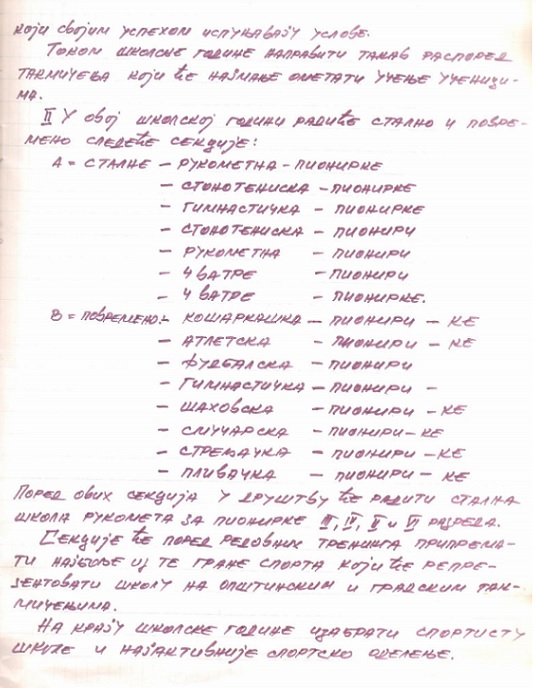 који својим успехом испуњавају услове.
Током школске године направити такав распоред
такмичења који ће најмање ометати учење ученици-
ма.
II У овој школској години радиће стално и повре-
мено следеће секције:
А = сталне – рукометна – пионирке
– стонотениска – пионирке
– гимнастичка – пионирке
– стонотениска – пионири
– рукометна – пионири
– 4 ватре – пионири
– 4 ватре – пионирке.
В = повремено: – кошаркашка – пионири – ке
– атлетска – пионири – ке
– фудбалска – пионири
– гимнастичка – пионири –
– шаховска – пионири – ке
– смучарска – пионири – ке
– стрељачка – пионири – ке
– пливачка – пионири – ке
Поред ових секција у друштву ће радити стална
школа рукомета за пионирке III, IV, V и VI разреда.
Секције ће поред редовних тренинга припрема-
ти најбоље из те гране спорта који ће репре-
зентовати школу на општинским и градским так-
мичењима.
На крају школске године изабрати спортисту
школе и најактивније спортско одељење.